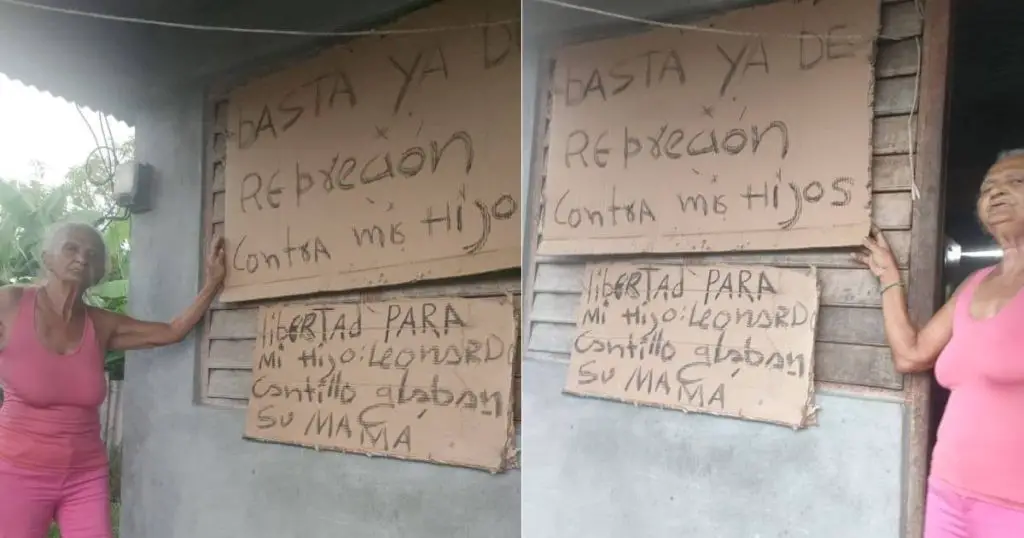 bASTA YA DE
REpreción
Contra mis Hijos
libERTAd PARA
Mi Hijo:LeonARD
Cantillo glaban
SU MAMA
bASTA YA DE
REpreción
Contra mis Hijos
libERTAd PARA
Mi Hijo:LeonARD
Cantillo glaban
SU MAMA